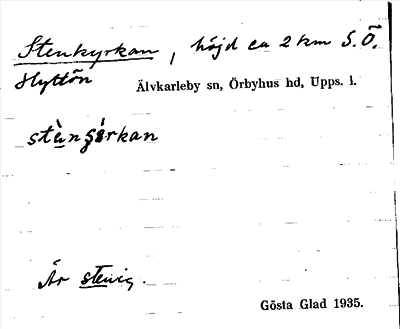 Stenkyrkan, höjd ca 2 km S.Ö.
Hyttön Älvkarleby sn, Örbyhus hd, Upps. l.
Är stenig.
Gösta Glad 1935.